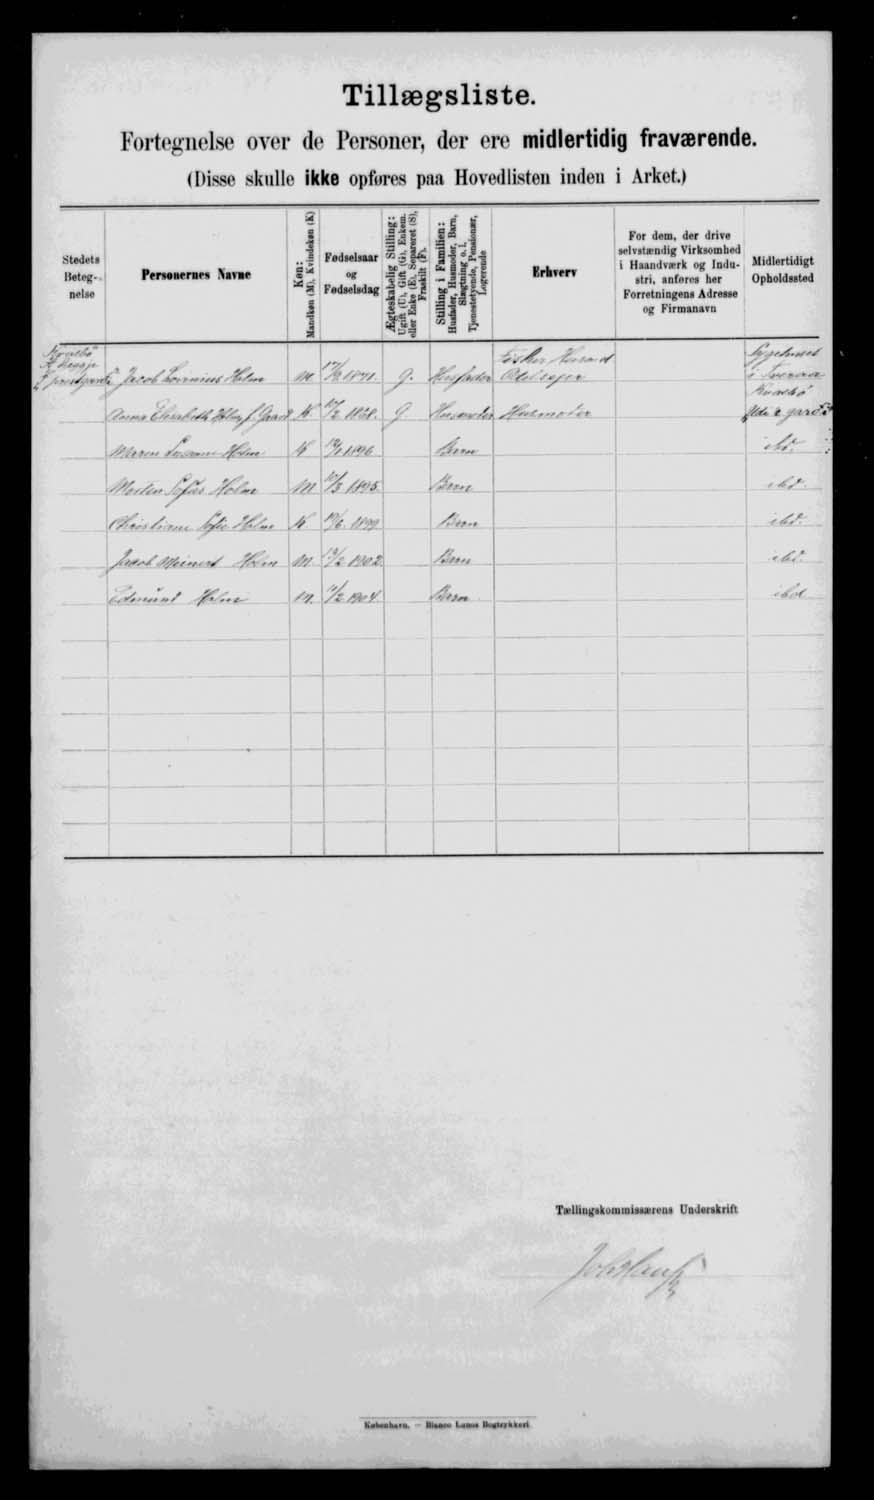 Tillægsliste.
Fortegnelse over de Personer, der ere midlertidig fraværende.
(Disse skulle ikke opføres paa Hovedlisten inden i Arket.)
Stedets Beteg-nelse
Personernes Navne
Køn: Mandkøn (M), Kvindekøn (K)
Fødselsaar og Fødselsdag
Ægteskabelig Stilling: Ugift (U), Gift (G), Enkem. eller Enke (E), Separeret (S), Fraskilt (F).
Stilling i Familien: Husfader, Husmoder, Barn, Slægtning o. l. Tjenestetyende, Pensionær, Logerende
Erhverv
For dem, der drive selvstændig Virksomhed i Haandværk og Industri, anføres her Forretningens Adresse og Firmanavn
Midlertidigt Opholdssted
Kvalbø
Jacob Lovinius Holm M. 1871. G. Husfader Fisker Husand Sygehuset i Tveraa
Anna Elisabeth Holm f. K. 1868. G. Husmoder Husmoder Kvalbø
Maren Susanne Holm K 1896 Barn ibd.
Morten Tofus Holm M 1895. Barn ibd.
Christiane Sofie Holm K 1899 Barn ibd.
Jacob Meinert Holm M. 1902. Barn ibd.
Edmund Holm M. 1904. Barn ibd
Tællingskommissærens Underskrift
København. — Bianco Lunos Bogtrykkeri